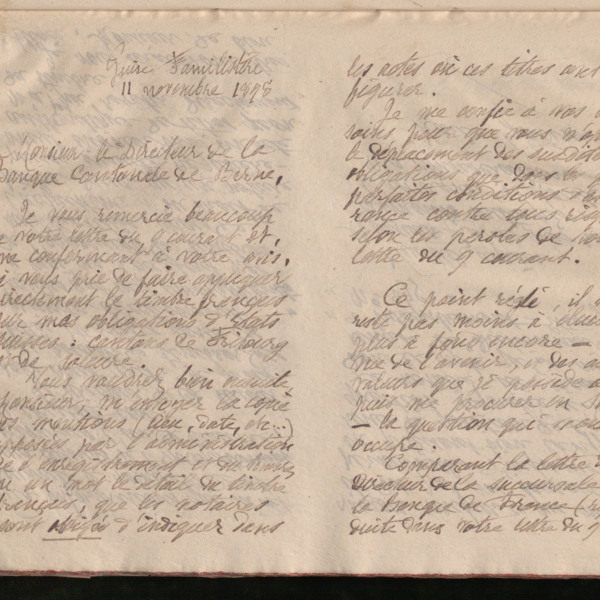 Guise Familistère
11 novembre 1898
Monsieur le Directeur de la
Banque Cantonale de Berne,
Je vous remercie beaucoup
de votre lettre du 9 courant et,
me conformant à votre avis,
je vous prie de faire appliquer
directement le timbre français
sur mes obligations d'Etats
Suisses : cantons de Fribourg
et de
Vous voudrez bien ensuite,
Monsieur, m'envoyer la copie
des mentions (lieu, date, etc...)
apposées par l'administration
de l'enregistrement et du timbre,
en un mot le détail du timbre
français, que les notaires
sont obligés d'indiquer dans
les actes où ces titres
figurer.
Je me confie à vos
soins pour que vous
le déplacement des
obligations que dans les
parfaites conditions
rance contre tous
selon les paroles de
lettre du 9 courant.
Ce point réglé, il
reste pas moins à
plus à fond encore —
me de l'avenir, et des
valeurs que je possède
puis me procurer en
— la question qui nous
occupe.
Comparant la lettre
Directeur de la succursale
la Banque de France
duite dans votre lettre du 9